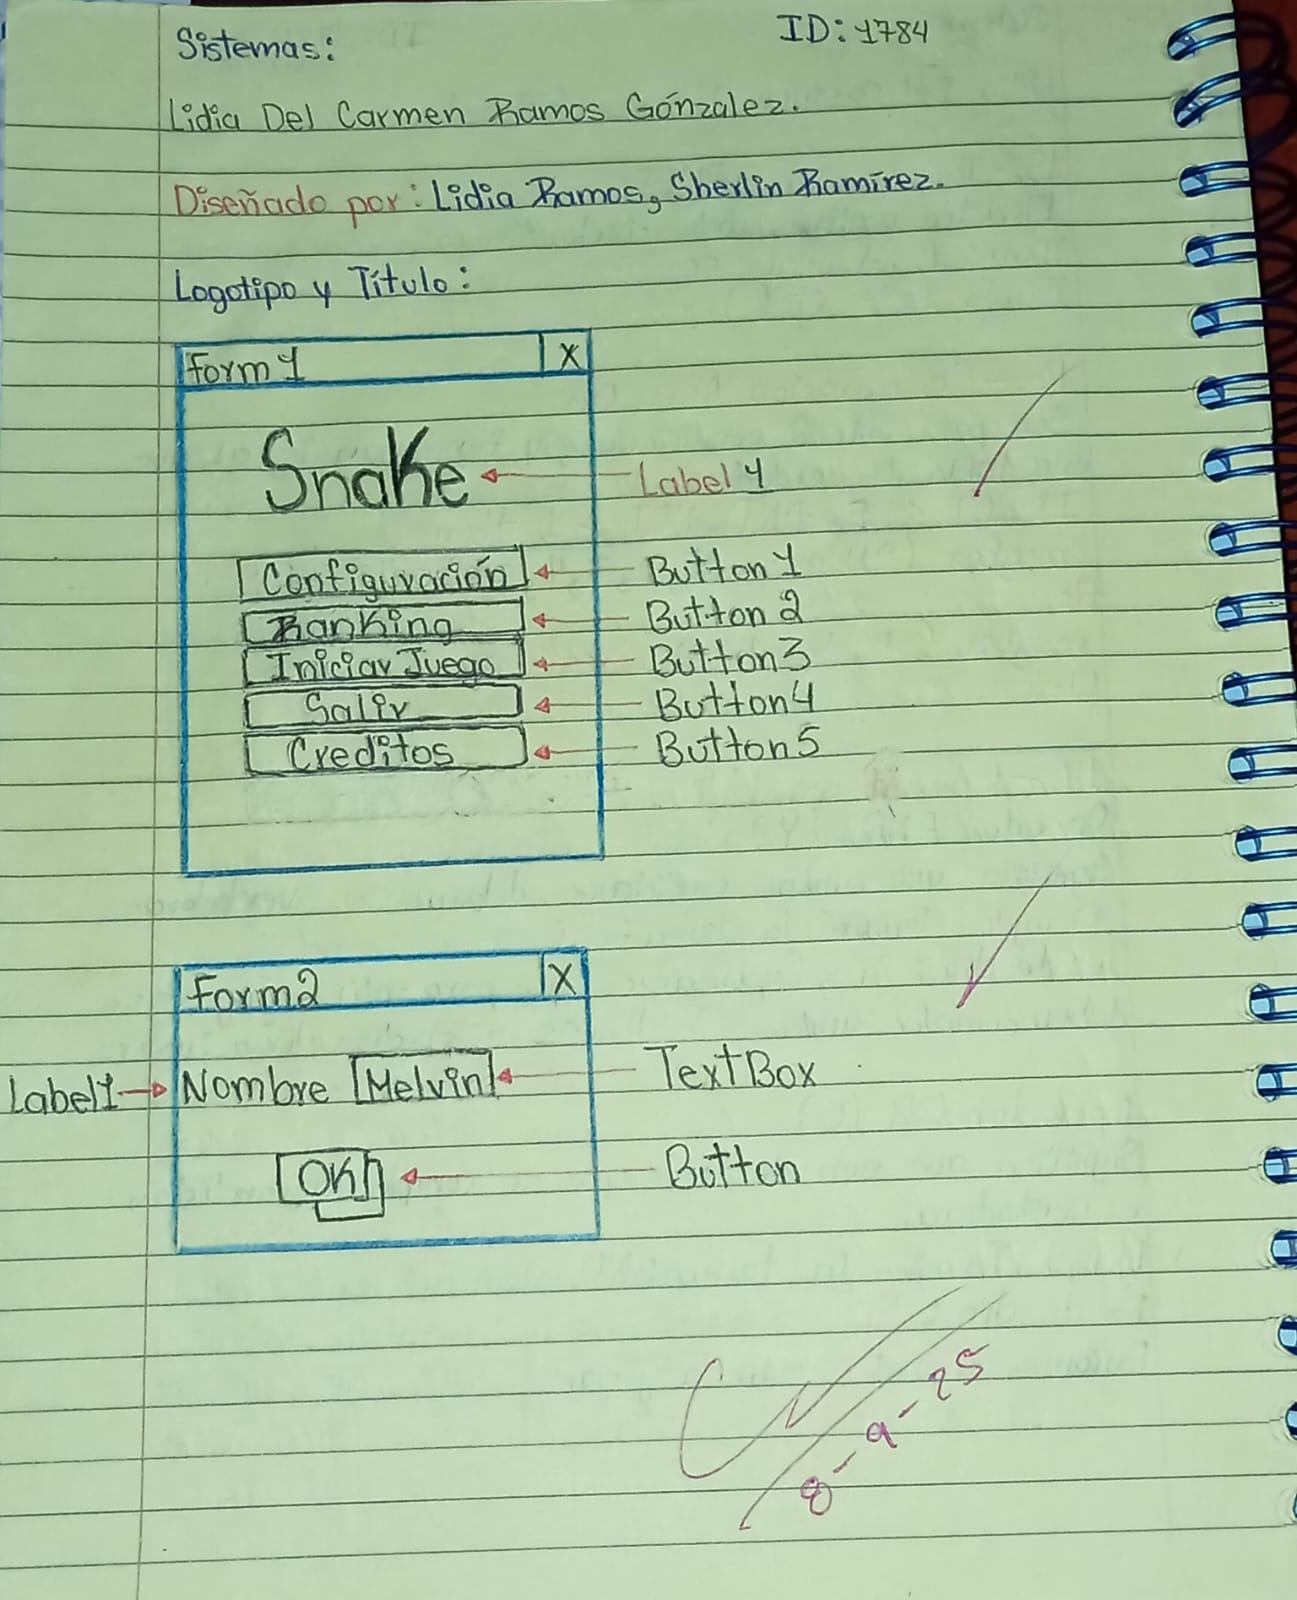 Sistemas:
ID: 1784
Lidia Del Carmen Ramos Gónzalez.
Diseñado por: Lidia Ramos, Sherlin Ramírez.
Logotipo y Título:
Form 1 X
Snake Label 1
Configuración Button 1
Ranking Button 2
Iniciar Juego Button 3
Salir Button 4
Creditos Button 5
Form2 X
Label1 Nombre Melvin TextBox
OK Button
8-9-25